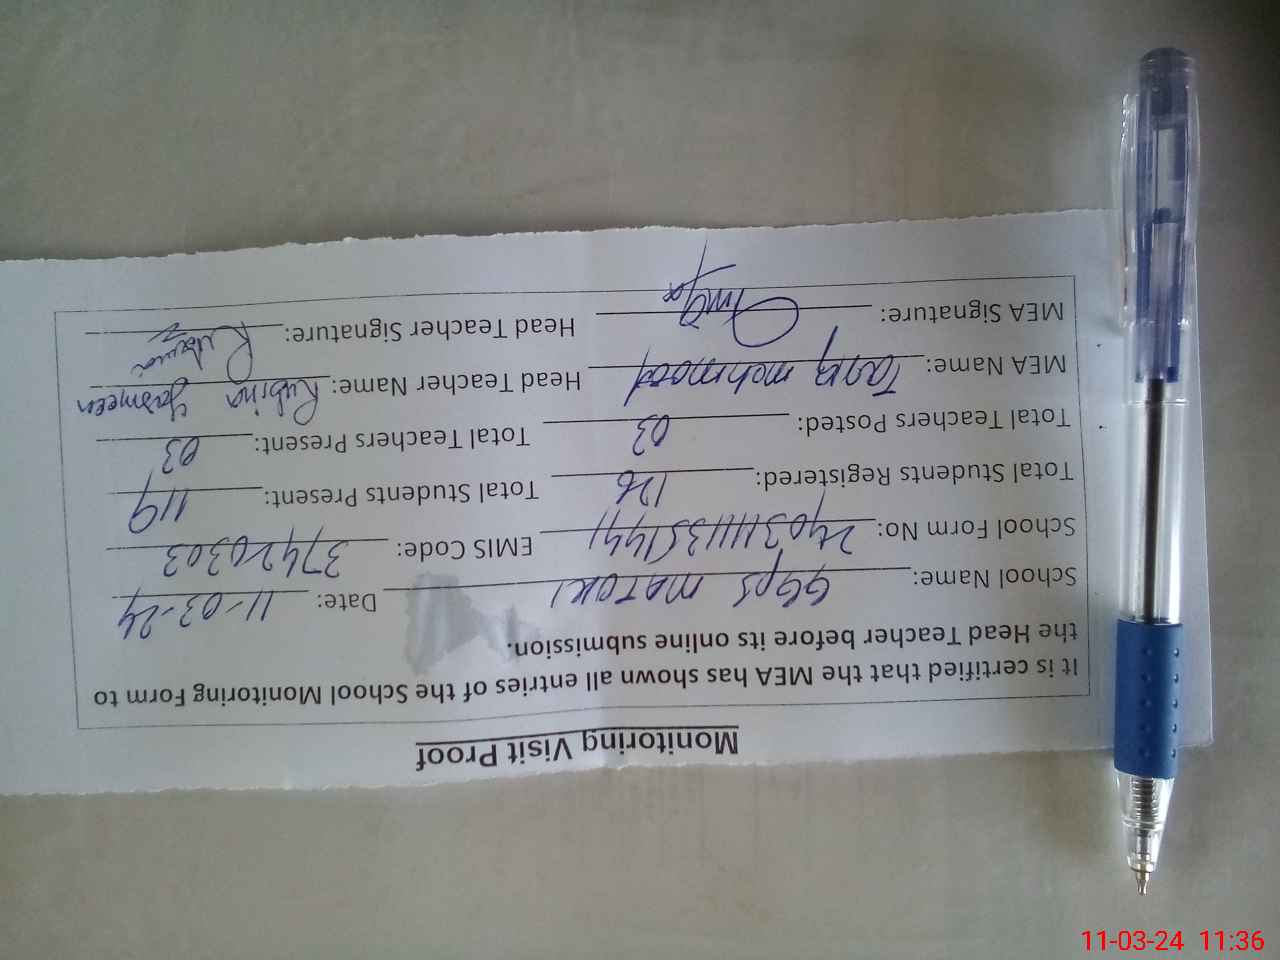 Monitoring Visit Proof
It is certified that the MEA has shown all entries of the School Monitoring Form to
the Head Teacher before its online submission.
School Name: GGPS MATORI Date: 11-03-24
School Form No: EMIS Code: 37420303
Total Students Registered: 126 Total Students Present: 119
Total Teachers Posted: 03 Total Teachers Present: 03
MEA Name: Tariq mehmood Head Teacher Name: Rubina Yasmeen
MEA Signature: Head Teacher Signature: Rubina
11-03-24 11:36